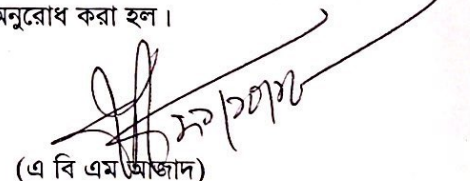 অনুরোধ করা হল।
(এ বি এম আজাদ)